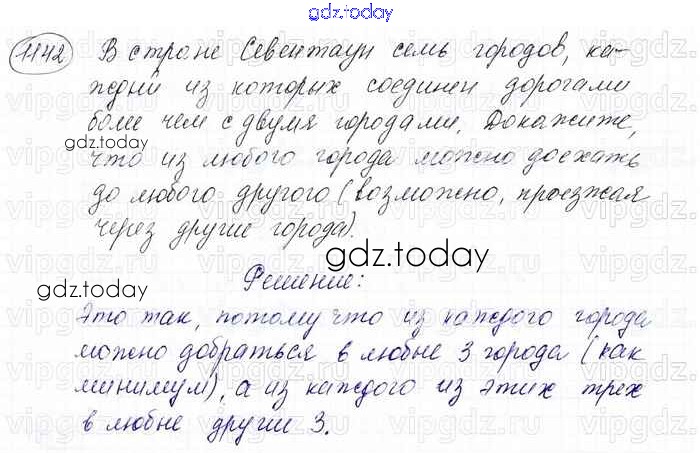 gdz.today
1142 В стране Севентаун семь городов, ка-
ждый из которых соединен дорогами
более чем с двумя городами. Докажите,
gdz.today
что из любого города можно доехать
до любого другого (возможно, проезжая
через другие города).
gdz.today
gdz.today
Решение:
Это так, потому что из каждого города
можно добраться в любые 3 города (как
минимум), а из каждого из этих трех
в любые другие 3.